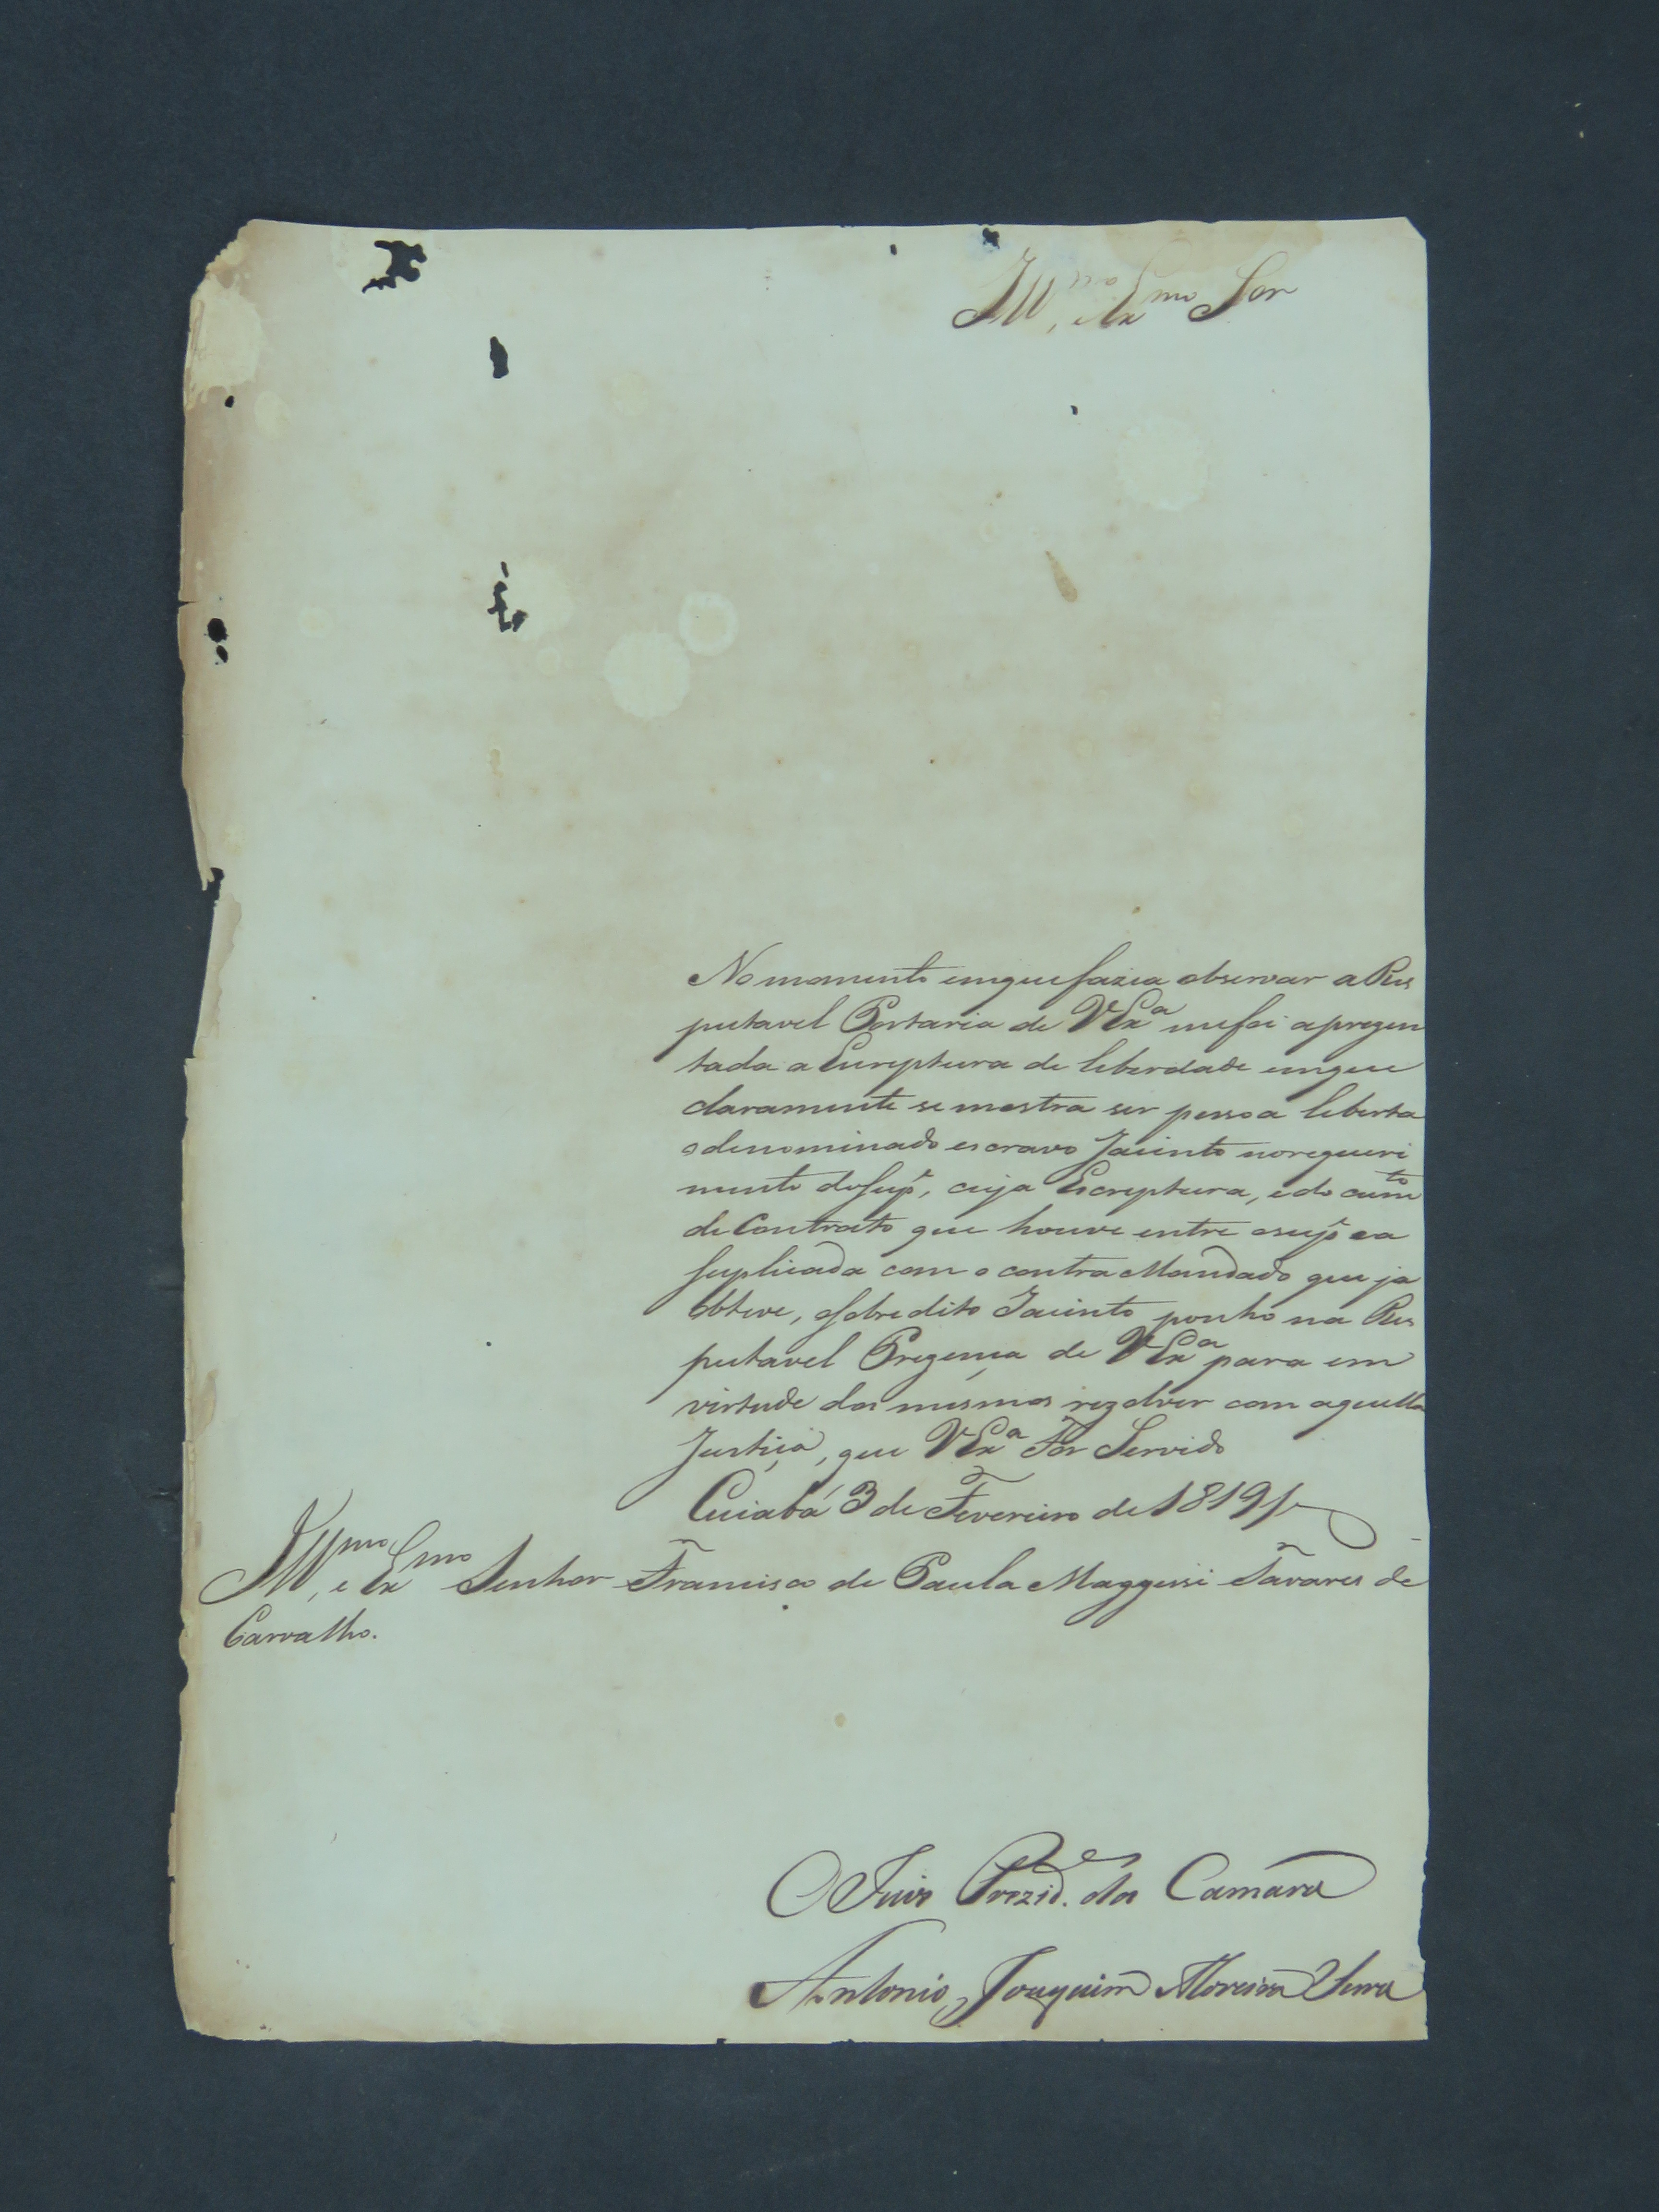 Ill.mo, e Ex.mo Sor
No momento emque fazia observar a Res
peitavel Portaria de VEx.a mefoi aprezen
tada a Escreptura de liberdade emque
claramente se mostra ser pessoa liberta
odenominado escravo Jacinto norequeri
mento dosup.e, cuja Escreptura, e docum.to
de Contrato que houve entre osup.e ea
suplicada com o contra Mandado que ja
Obteve, osobredito Jacinto ponho na Res
peitavel Prezença de VEx.a para em
virtude dos mesmos rezolver com aquella
Justiça, que VEx.a For Servido
Cuiabá 3 de Fevereiro de 1819
Ill.mo, e Ex.mo Senhor Francisco de Paula Maggessi Tavares de
Carvalho.
O Juis Prezid.e da Camara
Antonio Joaquim Moreira Serra